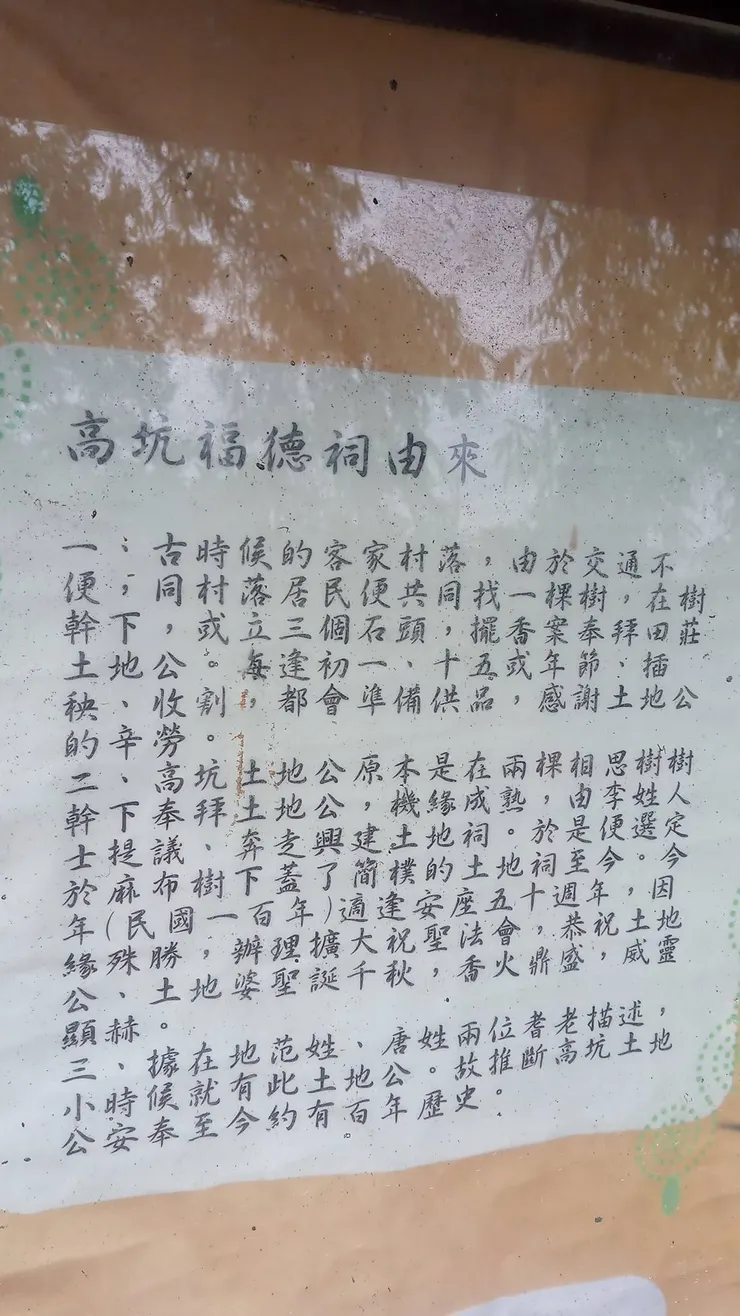 高坑福德祠由來
一：古時候的客家村落，由於交通不
便，同村落居民便共同找一棵樹，在樹
幹下，或立三個石頭，擺香案奉拜田莊
土地公。每逢初一、十五或年節、插
秧、收割，都會準備供品，感謝土地公
的辛勞。
二、高坑土地公原本是在兩棵相思樹樹
幹下奉拜土地公，機緣成熟。由李姓人
士提議、奔走興建土地祠，於是便選定
於麻布樹下蓋了簡樸的土地祠至今。今
年(民國一百年)適逢安座五十週年，因
緣殊勝，辦理擴大祝聖法會，恭祝土地
公、土地婆聖誕千秋，香火鼎盛，威靈
顯赫。
三、據在地范姓、唐姓兩位耆老描述，
小時候就有此土地公。故推斷高坑土地
公安奉至今約有百年歷史。